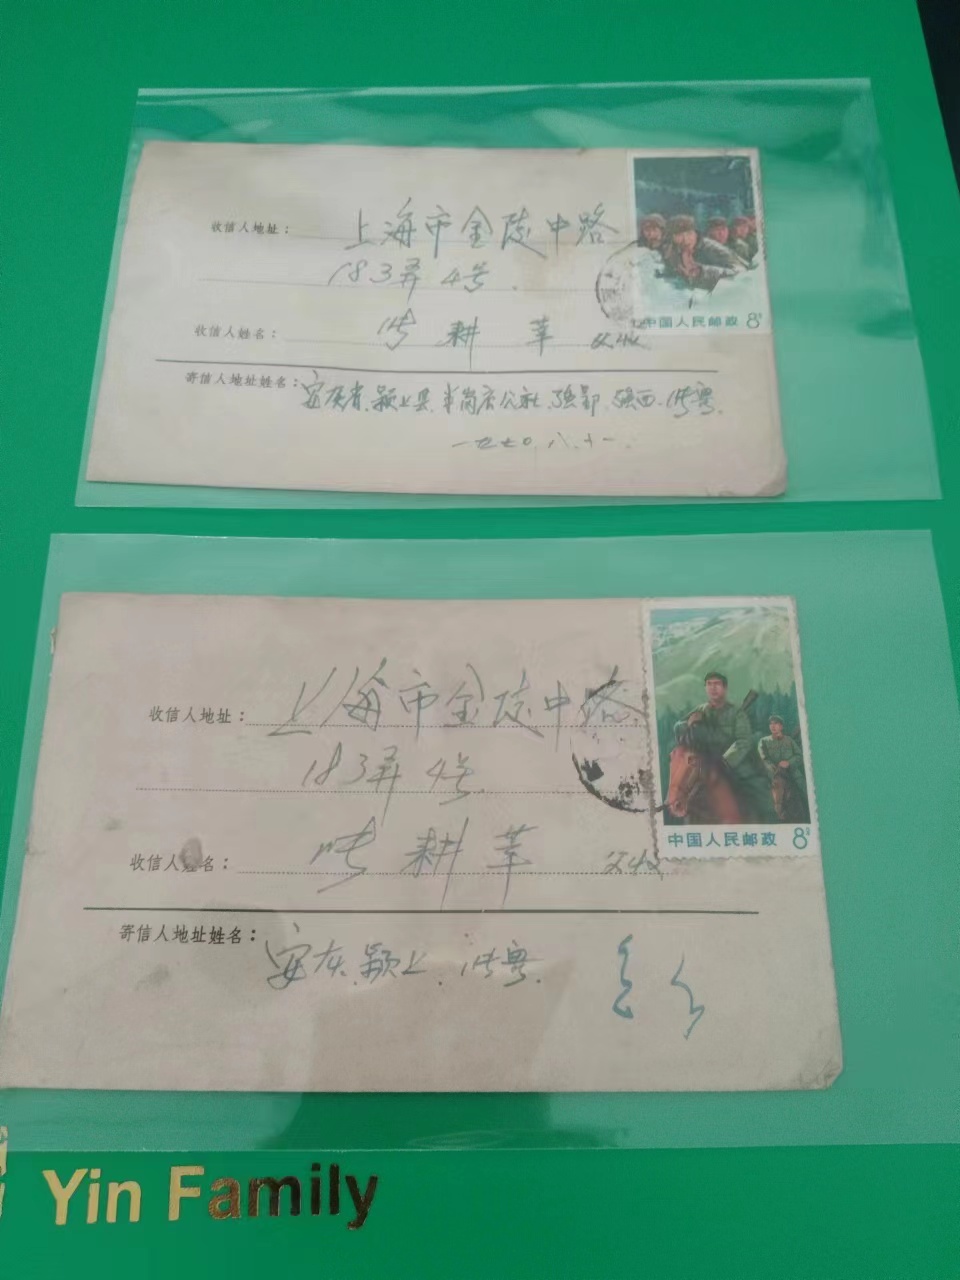 收信人地址： 上海市金陵中路
183弄 4号.
中国人民邮政 8分
收信人姓名： 洪耕莘
寄信人地址姓名： 安灰省.颍上县.半岗店公社.
一九七〇.八.十一.
收信人地址： 上海市金陵中路
183弄 4号
中国人民邮政 8分
收信人姓名： 洪耕莘
寄信人地址姓名： 安灰.颍上.
Yin Family